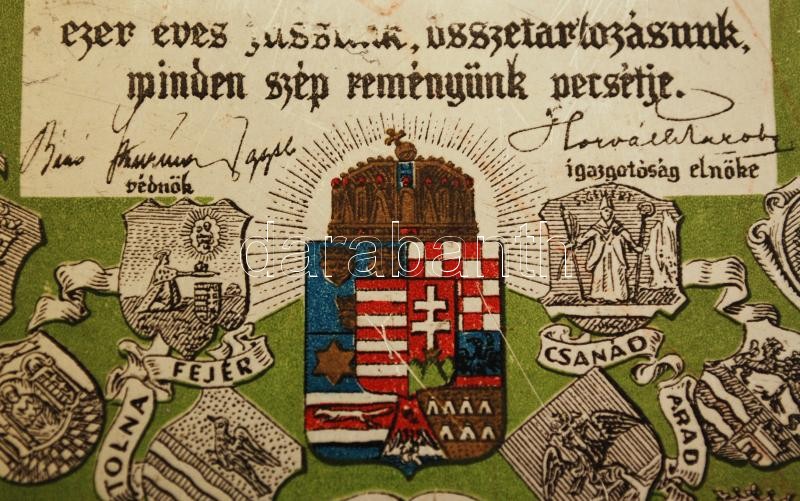 ezer éves jussunk, összetartozásunk,
minden szép reményünk pecsétje.
védnök
igazgatóság elnöke
S. GELLERT
darabanth
FEJÉR
CSANÁD
TOLNA
ARAD